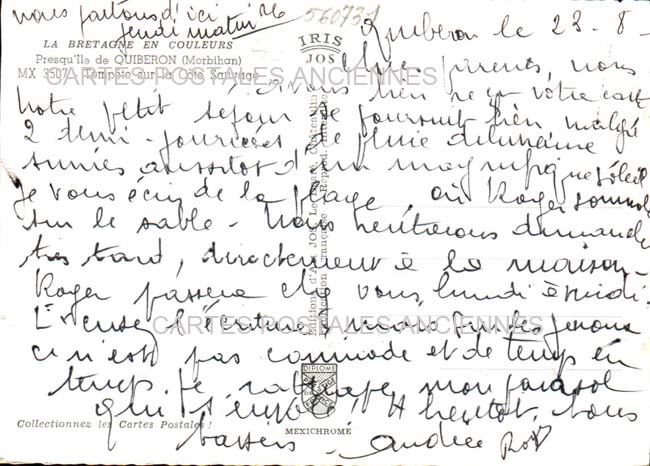 nous partons d'ici
jeudi matin 26
560731
LA BRETAGNE EN COULEURS
Presqu'île de QUIBERON (Morbihan)
MX 3507 Tempête sur la Côte Sauvage
IRIS
JOS
CARTES POSTALES ANCIENNES
Quiberon le 23-8-
parents, nous
avons bien reçu votre carte
notre petit séjour se poursuit bien malgré
2 demi-journées de pluie
suivies aussitôt d'un magnifique soleil
je vous écris de la plage, où Roger somnole
sur le sable - Nous rentrerons dimanche
très tard, directement à la maison -
Roger passera chez vous lundi à midi.
Excusez l'écriture, mais sur les genoux
CARTES POSTALES ANCIENNES
ce n'est pas commode et de temps en
temps je rattrape mon parasol
qui s'envole! A bientôt, bons
baisers - Andrée
DIPLOME
MEXICHROME
Collectionnez les Cartes Postales !